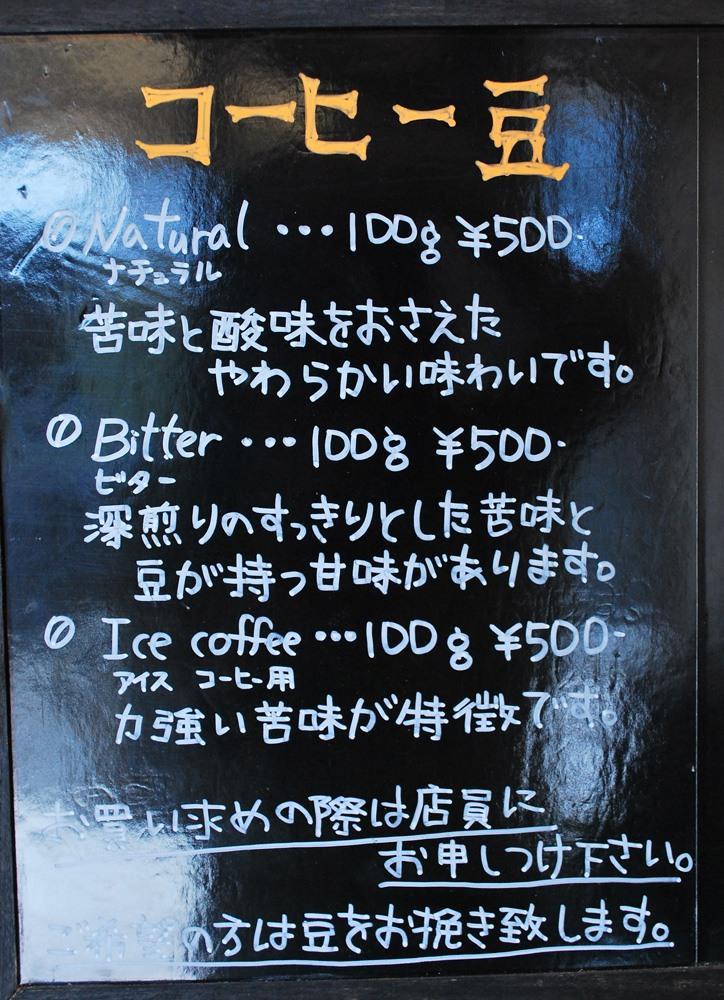 コーヒー豆
Natural ･･･100g ¥500-
ナチュラル
苦味と酸味をおさえた
やわらかい味わいです。
Bitter ･･･100g ¥500-
ビター
深煎りのすっきりとした苦味と
豆が持つ甘味があります。
Ice coffee ･･･100g ¥500-
アイス コーヒー用
力強い苦味が特徴です。
お買い求めの際は店員に
お申しつけ下さい。
ご希望の方は豆をお挽き致します。